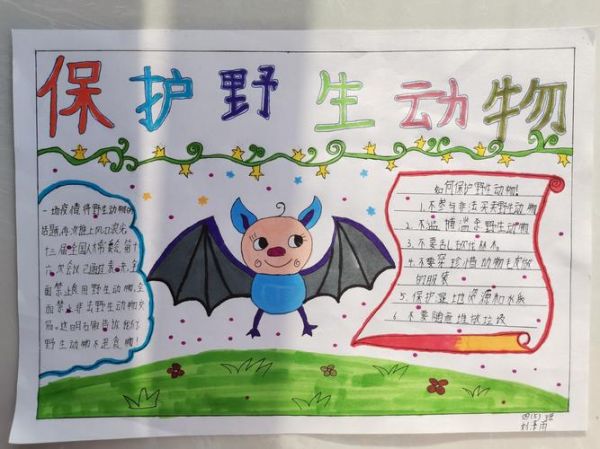 保护野生动物
一场疫情,将野生动物的
话题,再次推上风口浪尖,
十三届全国人大常委会第十
六次会议已通过表决,全
面禁止食用野生动物,全
面禁止非法野生动物交
易。这明确告诉我们
野生动物不是食物!
如何保护野生动物!
1.不参与非法买卖野生动物
2.不滥捕滥杀野生动物
3.不要乱砍伐林木
4.不要穿珍惜动物皮做
的服装
5.保护湿地资源和水质
6.不要随意堆放垃圾
四(5)班
刘
雨